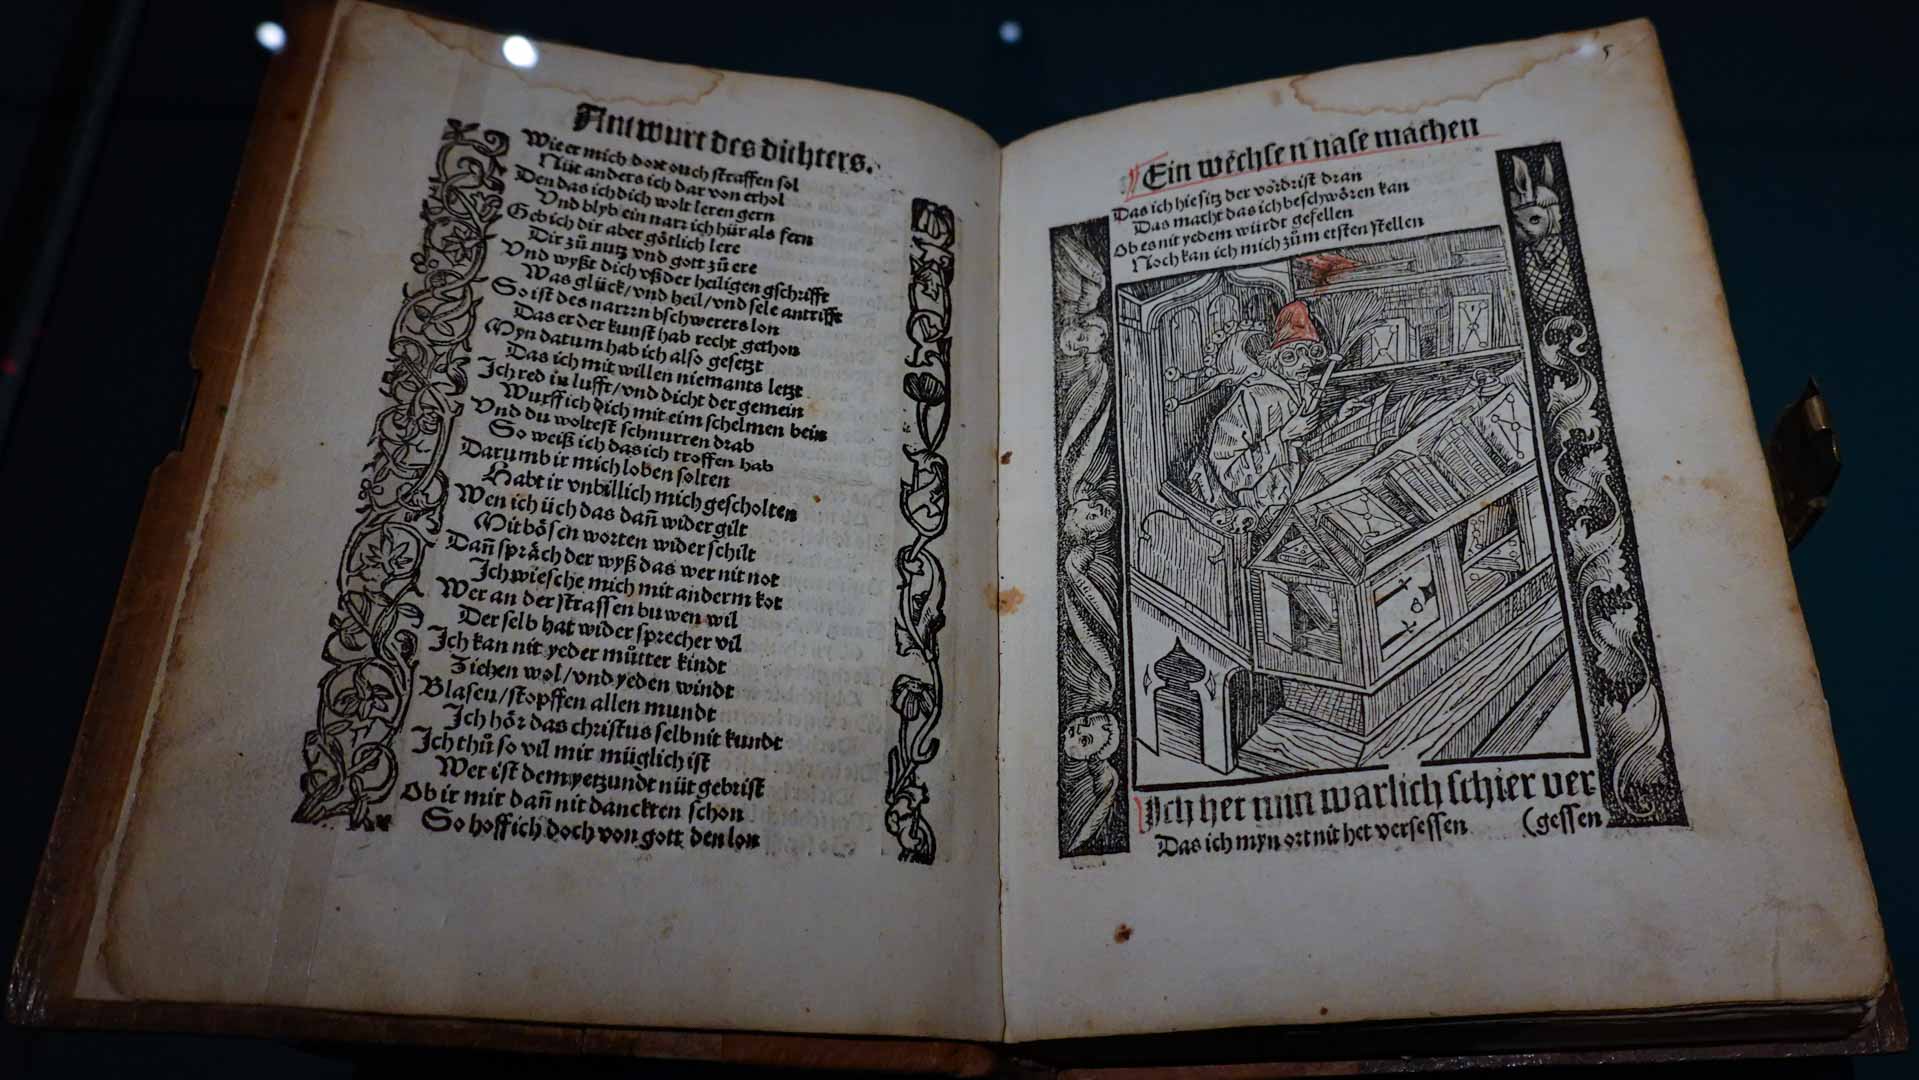 Antwurt des dichters.
Wie er mich dort ouch straffen sol
Nüt anders ich dar von erhol
Den das ich dich wolt leren gern
Vnd blyb ein narr ich hür als fern
Geb ich dir aber götlich lere
Dir zů nutz vnd gott zů ere
Vnd wyßt dich vß der heiligen gschrifft
Was glück/vnd heil/vnd sele antrifft
So ist des narrrn bschwerers lon
Das er der kunst hab recht gethon
Myn datum hab ich also gesetzt
Das ich mit willen niemants letzt
Ich red in lufft/vnd dicht der gemein
Wurff ich dich mit eim schelmen bein
Vnd du woltest schnurren drab
So weiß ich das ich troffen hab
Darumb ir mich loben solten
Habt ir vnbillich mich gescholten
Wen ich üch das dañ wider gilt
Mit bösen worten wider schilt
Dañ spräch der wyß das wer nit not
Ich wiesche mich mit anderm kot
Wer an der strassen buwen wil
Der selb hat wider sprecher vil
Ich kan nit yeder můtter kindt
Ziehen wol/vnd yeden windt
Blasen/stopffen allen mundt
Ich hör das christus selb nit kundt
Ich thů so vil mir müglich ist
Wer ist dem yetzundt nüt gebrist
Ob ir mir dañ nit danckten schon
So hoff ich doch von gott den lon
5
Ein wechsen nase machen
Das ich hie sitz der vordrist dran
Das macht das ich beschwören kan
Ob es nit yedem würdt gefellen
Noch kan ich mich zům ersten stellen
Ich het nun warlich schier ver
Das ich myn ort nit het versessen (gessen